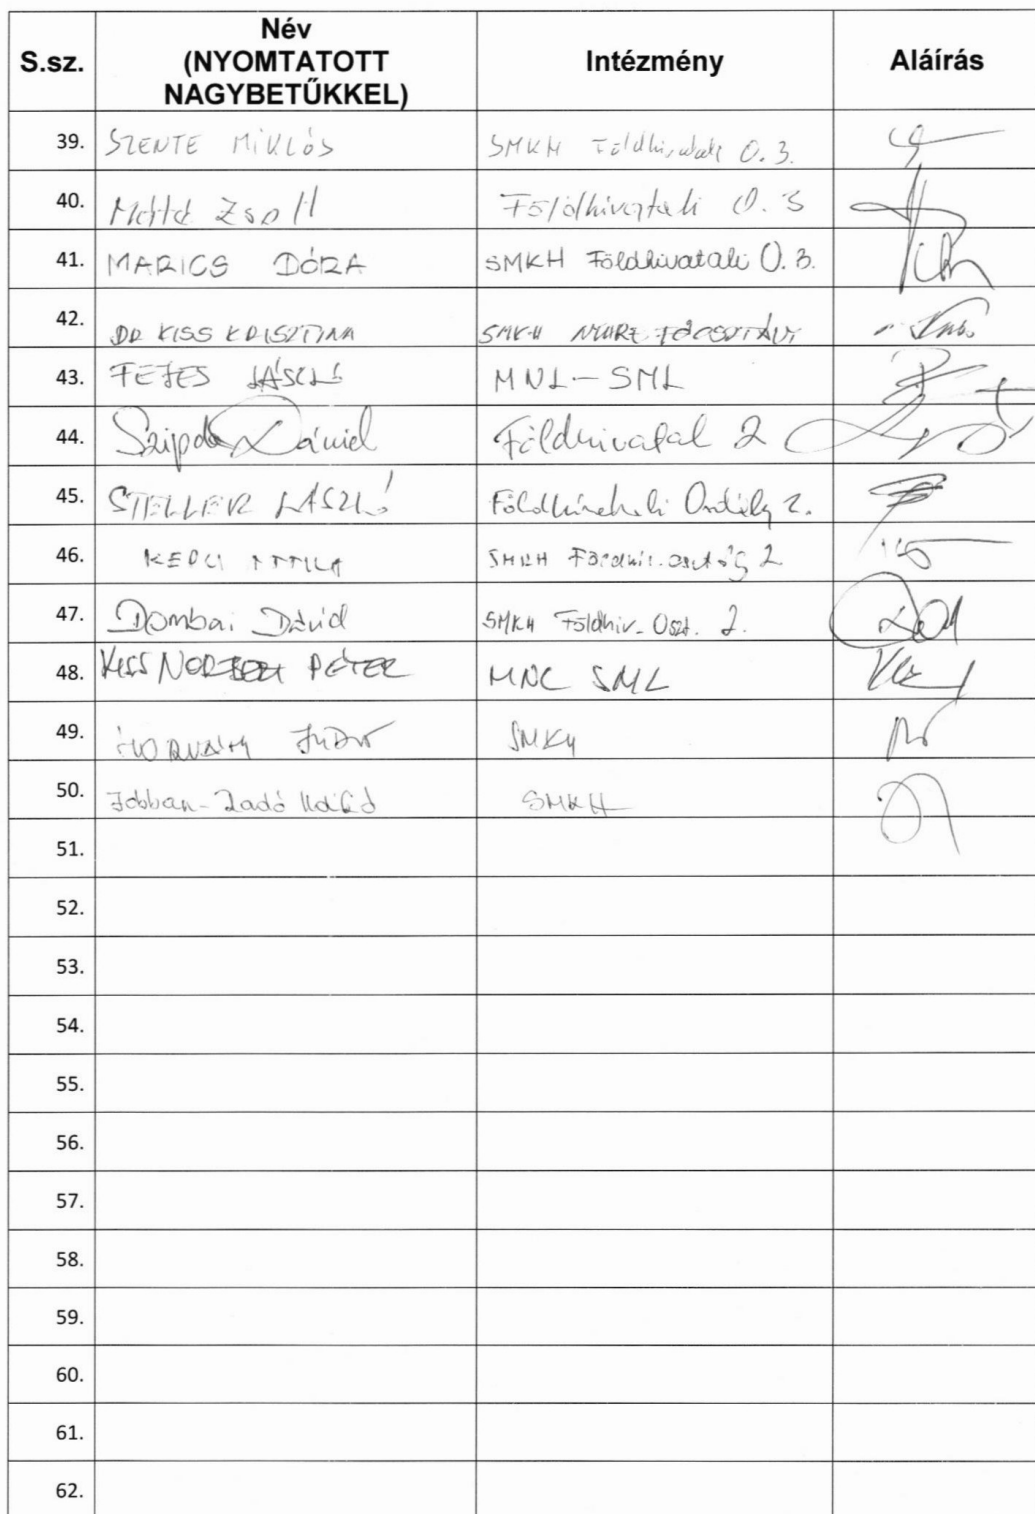 S.sz. Név (NYOMTATOTT NAGYBETŰKKEL) Intézmény Aláírás
39. SZENTE MIKLÓS SMKH Földhivatali O. 3.
40. Zsolt Földhivatali O. 3
41. MARICS DÓRA SMKH Földhivatali O. 3.
42. DR KISS KRISZTINA SMKH FŐOSZTÁLY
43. FEJES LÁSZLÓ MNL-SML
44. Dániel Földhivatal 2
45. STELLER LÁSZLÓ Földhivatali Osztály 2.
46. ATTILA SMKH 2
47. Dombai Dávid SMKH Földhiv. Oszt. 2.
48. KISS NORBERT PÉTER MNL SML
49. HORVÁTH SMKH
50. SMKH
51.
52.
53.
54.
55.
56.
57.
58.
59.
60.
61.
62.